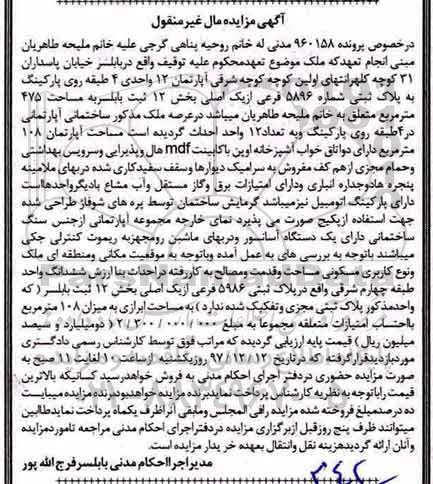 آگهی مزایده مال غیرمنقول
درخصوص پرونده ۹۶۰۱۵۸ مدنی له خانم روحیه پناهی گرجی علیه خانم ملیحه طاهریان
مبنی انجام تعهدکه ملک موضوع تعهدمحکوم علیه توقیف واقع دربابلسر خیابان پاسداران
۳۱ کوچه کلهرانتهای اولین کوچه کوچه شرقی آپارتمان ۱۲ واحدی ۴ طبقه روی پارکینگ
به پلاک ثبتی شماره ۵۸۹۶ فرعی ازیک اصلی بخش ۱۲ ثبت بابلسربه مساحت ۴۷۵
مترمربع متعلق به خانم ملیحه طاهریان میباشد درعرصه ملک مذکور ساختمانی آپارتمانی
در۴طبقه روی پارکینگ وبه تعداد۱۲ واحد احداث گردیده است مساحت آپارتمان ۱۰۸
مترمربع دارای دواتاق خواب آشپزخانه اوپن باکابینت mdf هال وپذیرایی وسرویس بهداشتی
وحمام مجزی ازهم کف مفروش به سرامیک دیوارها وسقف سفیدکاری شده دربهای ملامینه
پنجره هادوجداره انباری ودارای امتیازات برق وگاز مستقل وآب مشاع بادیگرواحدهااست
دارای پارکینگ اتومبیل نیزمیباشد گرمایش ساختمان توسط پره های شوفاژ طراحی شده
جهت استفاده ازپکیج صورت می پذیرد نمای خارجه مجموعه آپارتمانی ازجنس سنگ
ساختمانی دارای یک دستگاه آسانسور ودربهای ماشین رومجهزبه ریموت کنترلی جکی
میباشند باتوجه به بررسی های به عمل آمده وباتوجه به موقعیت مکانی ومنطقه ای ملک
ونوع کاربری مسکونی مساحت وقدمت ومصالح به کاررفته دراحداث بنا ارزش ششدانگ واحد
طبقه چهارم شرقی واقع درپلاک ثبتی ۵۹۸۶ فرعی ازیک اصلی بخش ۱۲ ثبت بابلسر ( که
واحدمذکور پلاک ثبتی مجزی وتفکیک شده ندارد ) به مساحت ابرازی به میزان ۱۰۸ مترمربع
بااحتساب امتیازات متعلقه مجموعا به مبلغ ۲/۳۰۰/۰۰۰/۰۰۰ ( دومیلیارد و سیصد
میلیون ریال ) قیمت پایه ارزیابی گردیده که مراتب فوق توسط کارشناس رسمی دادگستری
موردبازدیدقرارگرفته که درتاریخ ۹۷/۱۲/۱۲ روزیکشنبه ازساعت ۱۰ لغایت ۱۱ صبح به
صورت مزایده حضوری دردفتر اجرای احکام مدنی به فروش خواهدرسید کسانیکه بالاترین
قیمت راباتوجه به نظریه کارشناس پرداخت نمایدبرنده مزایده خواهدبودبرنده مزایده میبایست
ده درصدمبلغ فروخته شده مزایده رافی المجلس ومابقی آنراظرف یکماه پرداخت نمایدطالبین
میتوانند ظرف پنج روزقبل ازبرگزاری مزایده دردفتراجرای احکام مدنی مراجعه تاموردمزایده
وآنان ارائه گرددهزینه نقل وانتقال بعهده خریدار مزایده است.
مدیراجرااحکام مدنی بابلسرفرج الله پور